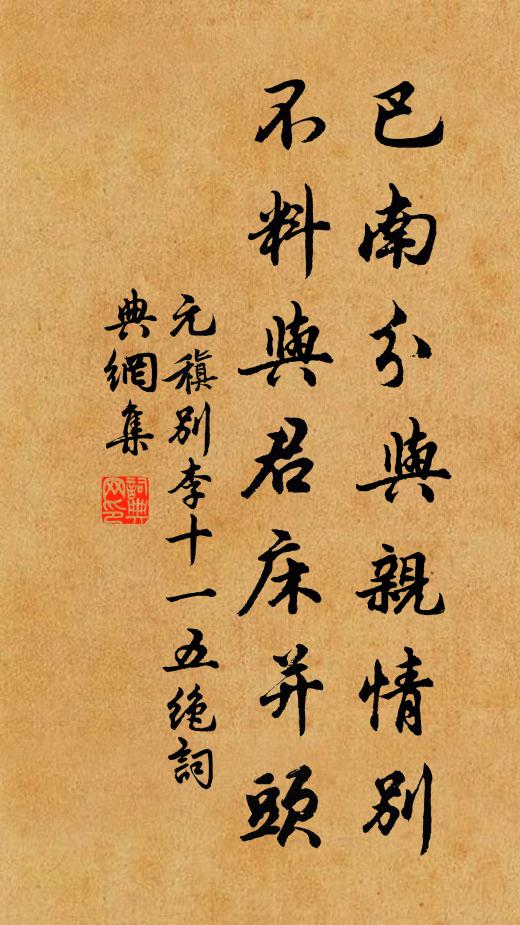 巴南分與親情別
不料與君床并頭
元稹別李十一五絕詞
典網集
詞典
网印